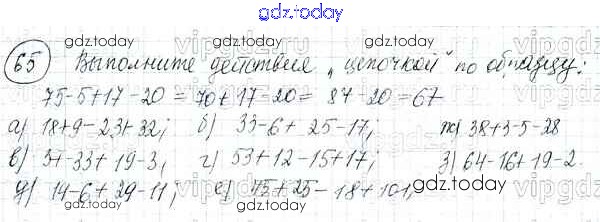 gdz.today
65 Выполните действие „цепочкой" по образцу:
75-5+17-20=70+17-20=87-20=67
а) 18+9-23+32; б) 33-6+25-17; ж) 38+3-5-28
в) 3+33+19-3; г) 53+12-15+17; з) 64-16+19-2
д) 14-6+29-11; е) 75+25-18+101
gdz.today
gdz.today
gdz.today
gdz.today
gdz.today